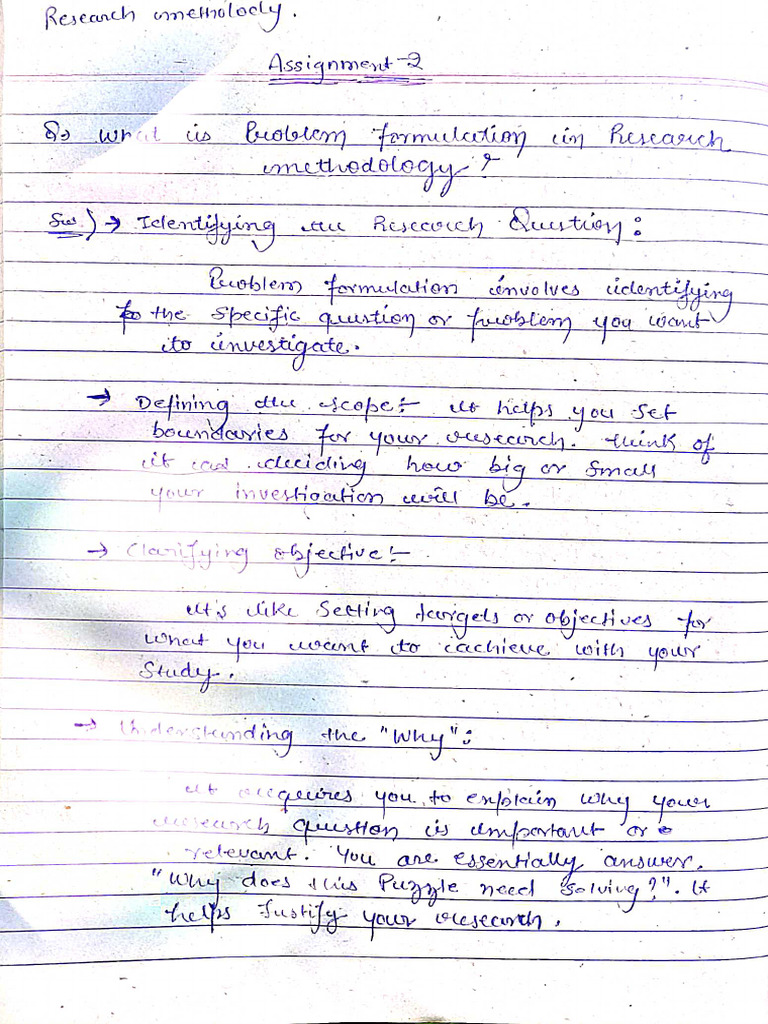 Research methology.
Assignment-2
Q> What is Problem formulation in Research
methodology?
Sol) → Identifying the Research Question:
Problem formulation involves identifying
the specific question or problem you want
to investigate.
→ Defining the scope:- It helps you set
boundaries for your research. think of
it as deciding how big or small
your investigation will be.
→ Clarifying objective:-
It's like setting targets or objectives for
what you want to achieve with your
study.
→ Understanding the "Why":
It requires you to explain why your
research question is important or
relevant. You are essentially answer.
"Why does this Puzzle need solving?". It
helps Justify your research.